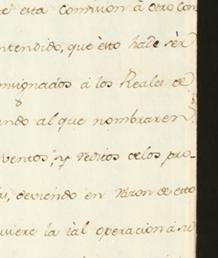 esta comision á otro con
ntendido, que ésto hade sèr
nsignados á los Reales de
ando al que nombraren
ventos, y reditos delos pro-
as, deviendo en razon de esto
uviere la tal operacion á su